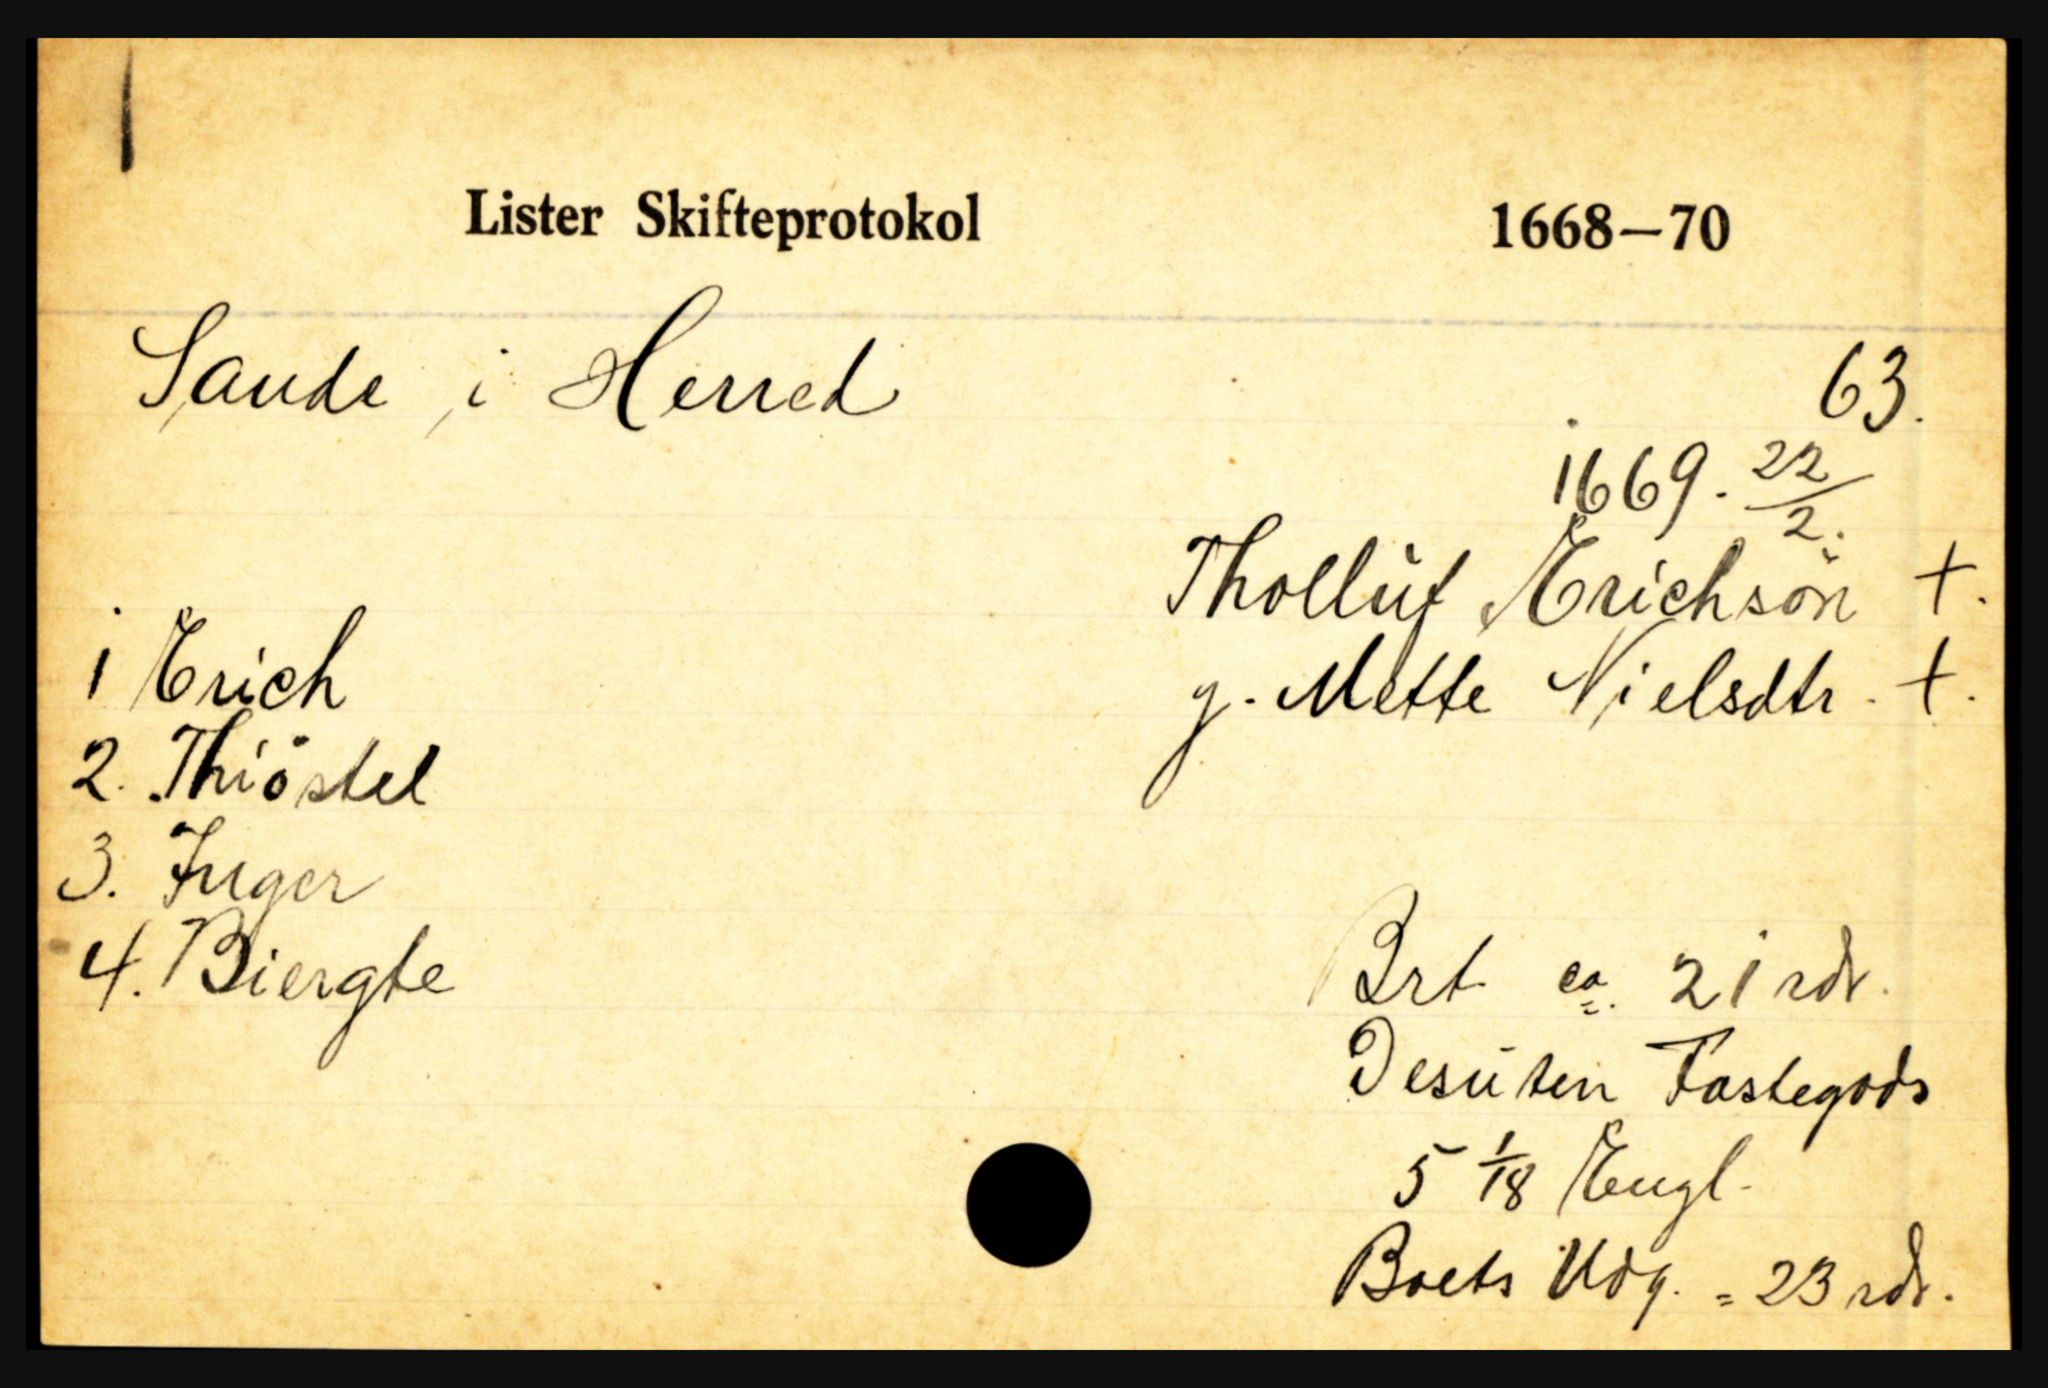 Lister Skifteprotokol 1668—70
Sande i Herred 63.
1669. 22/2.
Thollüf Erichsön +.
g. Mette Nielsdtr. +.
1 Erich
2. Thiöstel
3. Inger
4. Biergte
Brt ca. 21 rdr.
Desüten Fastegods
5 1/18 Engl.
Boets Udg. = 23 rdr.